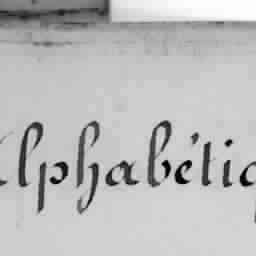 Alphabétiq